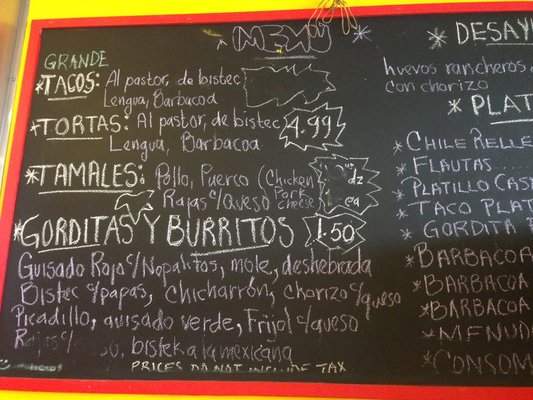 MENU
GRANDE
*TACOS: Al pastor, de bistec
Lengua, Barbacoa
*TORTAS: Al pastor, de bistec 4.99
Lengua, Barbacoa
*TAMALES: Pollo, Puerco (Chicken
Pork
Rajas c/Queso Cheese)
dz
ea
*GORDITAS Y BURRITOS 1.50
Guisado Rojo c/Nopalitos, mole, deshebrada
Bistec c/papas, Chicharrón, Chorizo c/queso
Picadillo, guisado verde, Frijol c/queso
Rajas c/ bistek a la mexicana
PRICES DO NOT INCLUDE TAX
*DESAY
huevos rancheros
con chorizo
*PLAT
*CHILE RELLE
*FLAUTAS
*PLATILLO CAS
*TACO PLAT
*GORDITA
*BARBACOA
*BARBACOA
*BARBACOA
*MENUD
*CONSOM